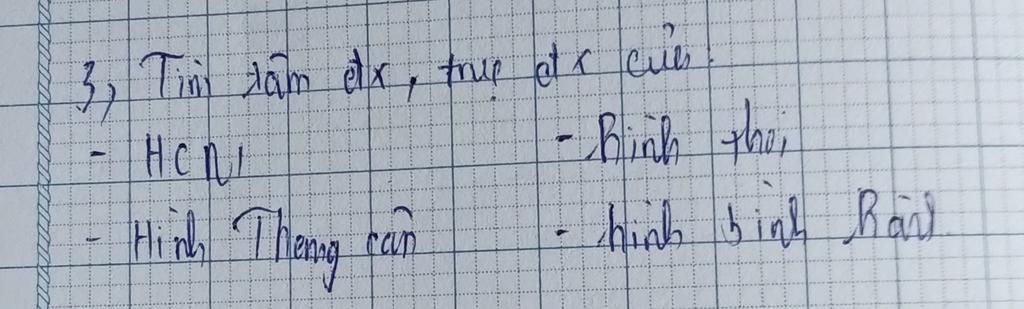 3, Tìm tâm đx, trục đx của
- HCN, - Hình thoi
- Hình Thang cân - hình bình hành